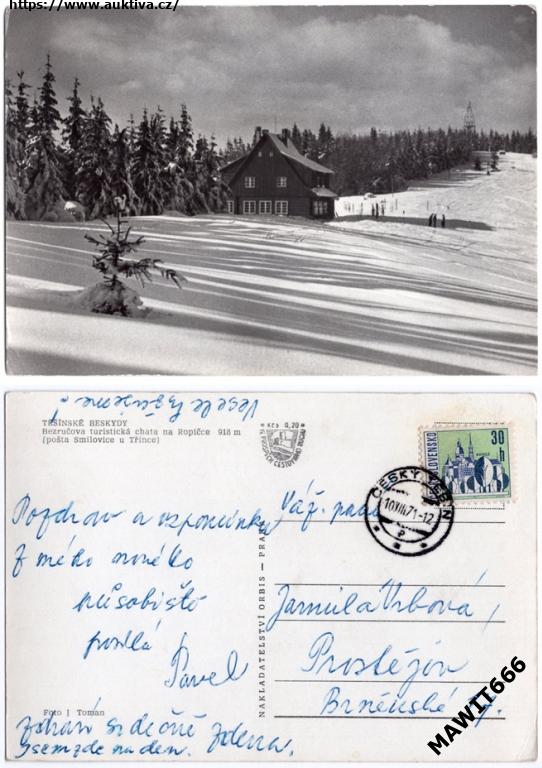 https://www.auktiva.cz/
TĚŠÍNSKÉ BESKYDY
Bezručova turistická chata na Ropičce 918 m
(pošta Smilovice u Třince)
Kčs 0,20
30 h
ČESKÝ TĚŠÍN
10.VIII.71-12
Veselé
Pozdrav a vzpomínku
z mého nového
působiště
posílá
Pavel
Váž. paní
Jarmila Vrbová,
Prostějov
Brněnská
NAKLADATELSTVÍ ORBIS — PRAHA
Foto J Toman
zdraví srdečně Zdena.
jsem zde na den.
MAWIT666